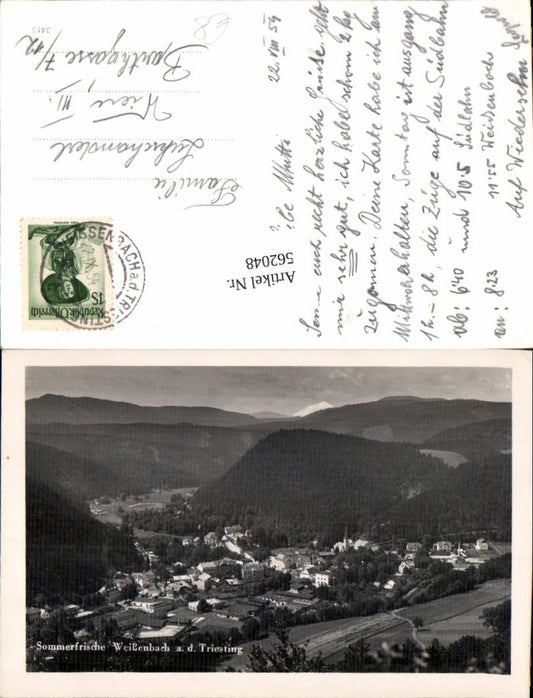 22. VIII 54
?. Be Mutti
Sende euch recht herzliche Grüsse geht
mir sehr gut, ich habe schon 2 kg
zugenommen. Deine Karte habe ich am
Mittwoch erhalten, Sonntag ist ausgang
1h - 8h, die Züge auf der Südbahn
ab: 6'40 und 110'5 Südbahn
an: 8.23 11'55 Weißenbach
Auf Wiedersehn
Familie
Wien, III.
7/12
3415
Artikel Nr.
562048
WEISSENBACH a.d. TRIESTING
1S
Republik Österreich
Sommerfrische Weißenbach a. d. Triesting